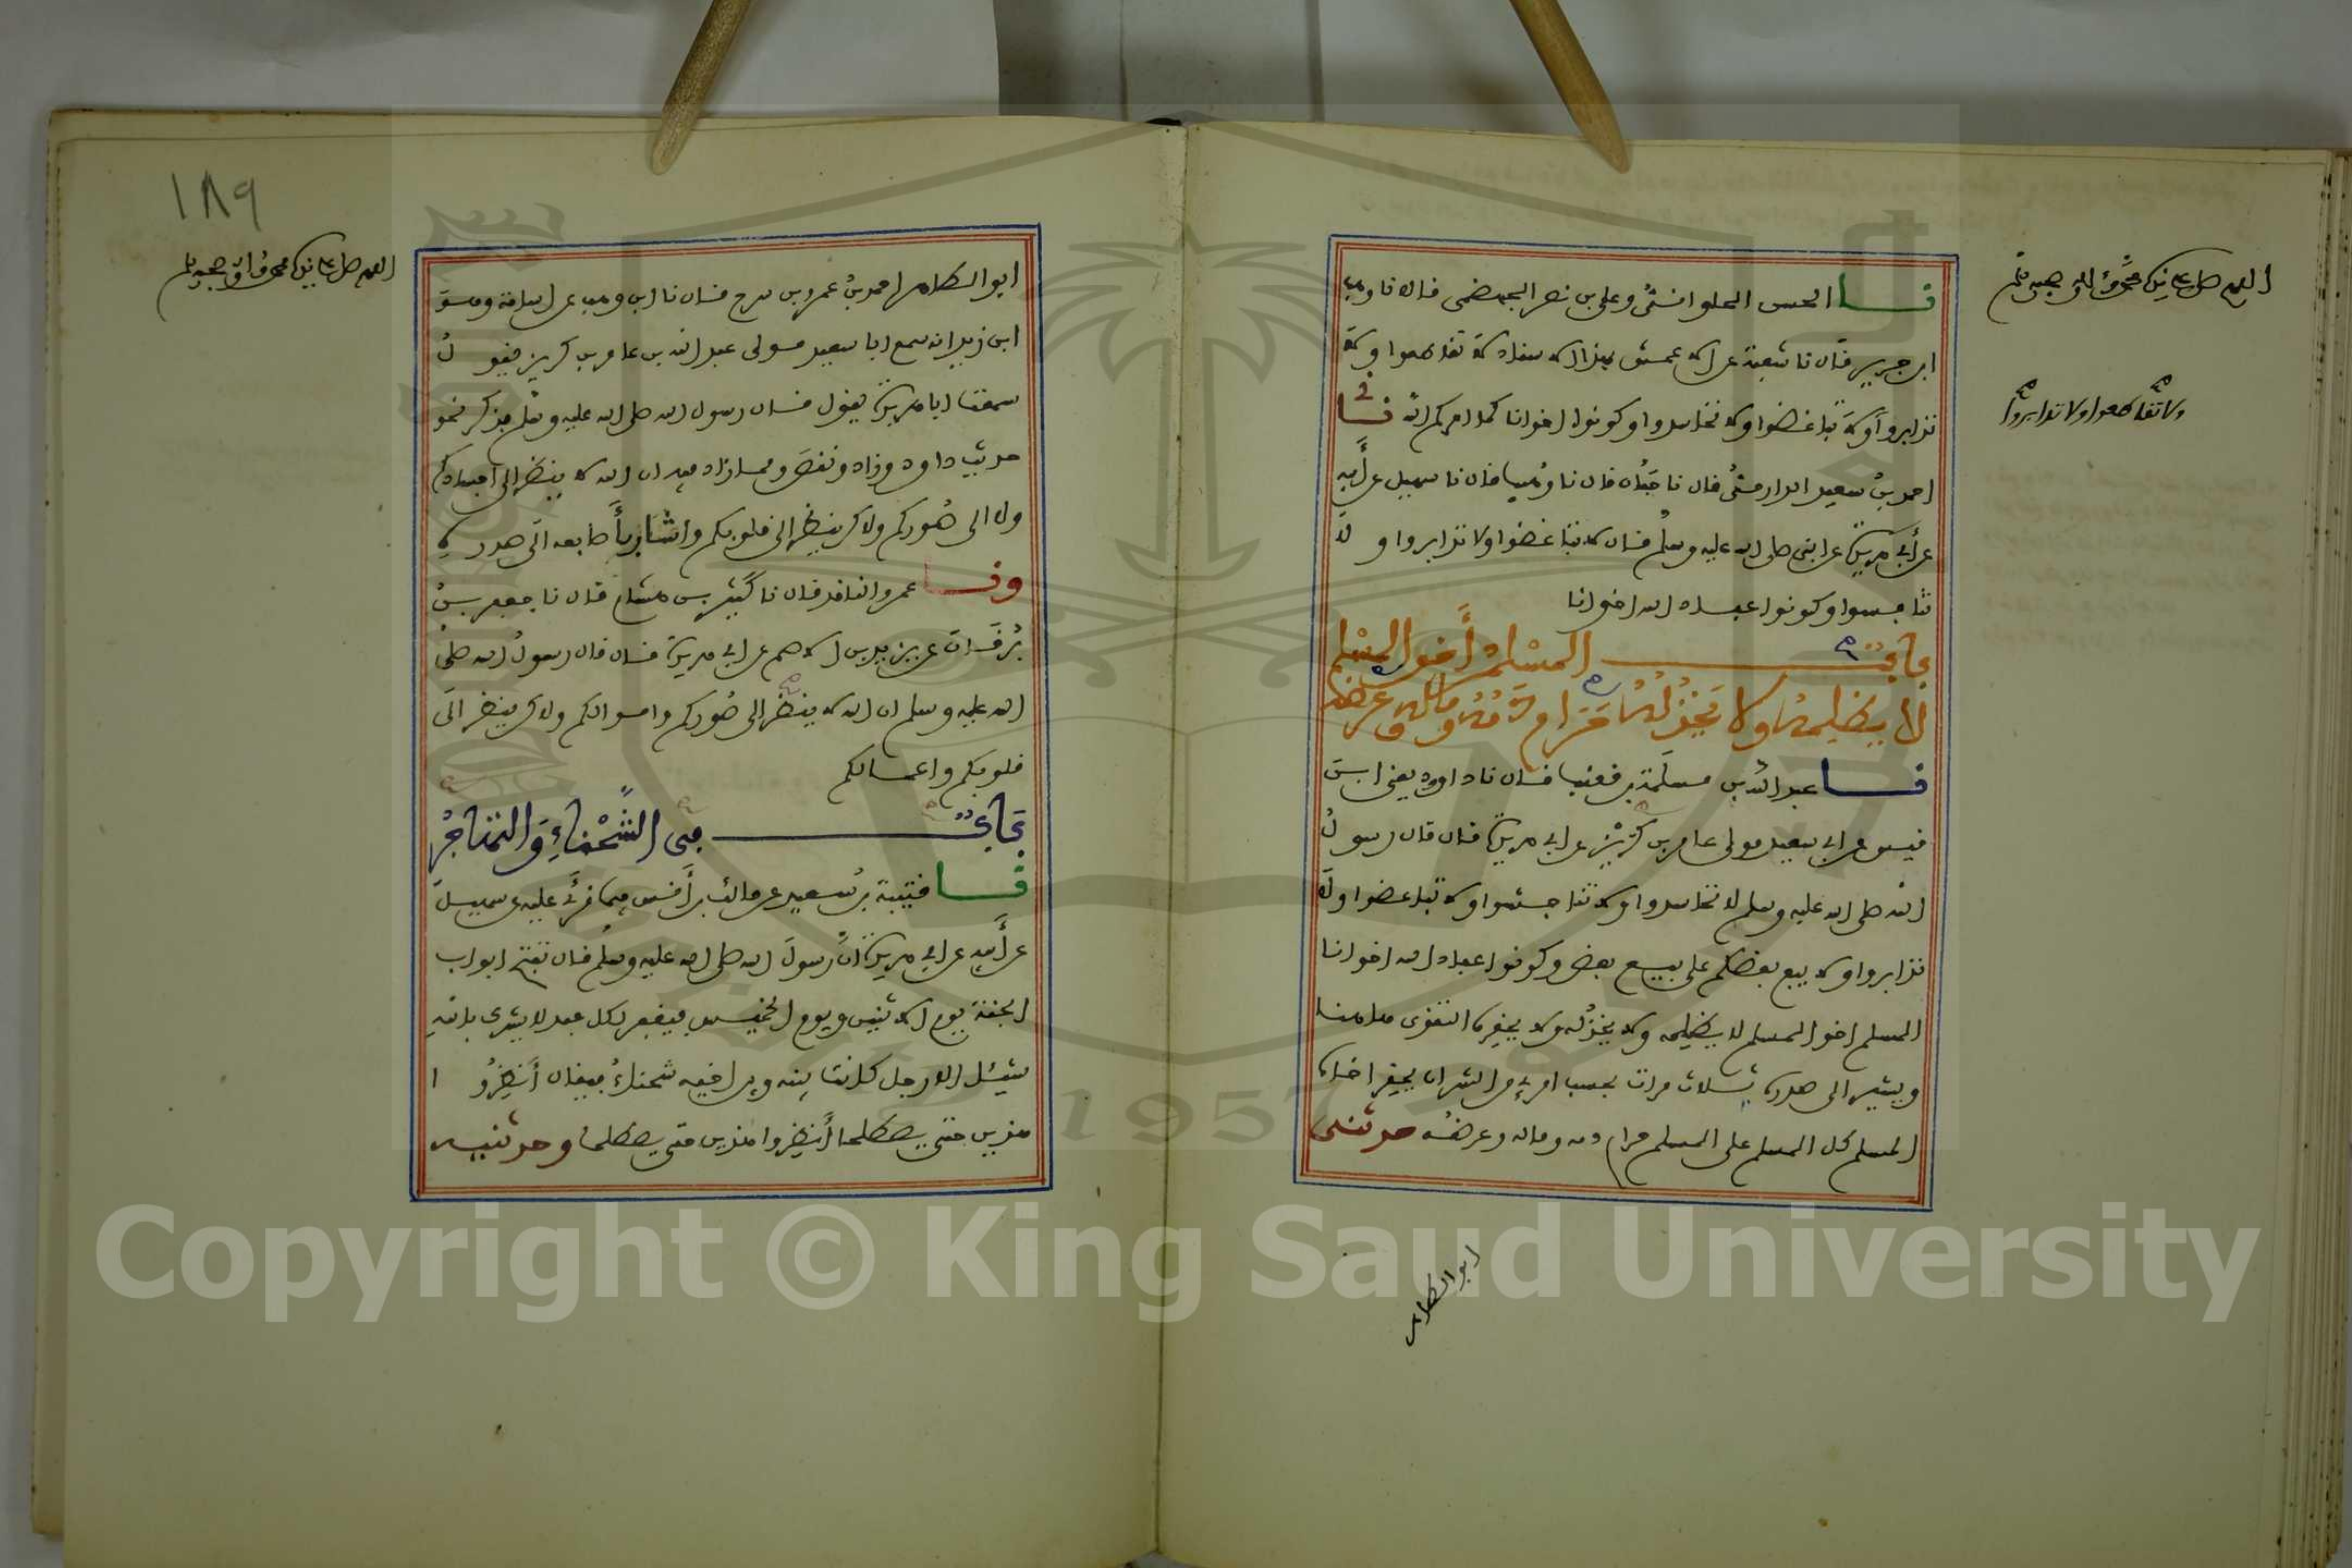 اللهم صل على نبيك محمد واله وصحبه وسلم
نا الحسن الحلواني وعلي بن نصر الجهضمي قالا نا وهب
ابن جرير قال نا شعبة عن الاعمش بهذا الاسناد لا تقاطعوا ولا
تدابروا ولا تباغضوا ولا تحاسدوا وكونوا اخوانا كما امركم الله نا
ولا تقاطعوا ولا تدابروا
احمد بن سعيد الدارمي قال نا حبان قال نا وهيب قال نا سهيل عن أبيه
عن أبي هريرة عن النبي صلى الله عليه وسلم قال لا تباغضوا ولا تدابروا ولا
تنافسوا وكونوا عباد الله اخوانا
باب المسلم أخو المسلم
لا يظلمه ولا يخذله حرام دمه وماله وعرضه
نا عبد الله بن مسلمة بن قعنب قال نا داود يعني ابن
قيس عن ابي سعيد مولى عامر بن كريز عن ابي هريرة قال قال رسول
الله صلى الله عليه وسلم لا تحاسدوا ولا تناجشوا ولا تباغضوا ولا
تدابروا ولا يبع بعضكم على بيع بعض وكونوا عباد الله اخوانا
المسلم اخو المسلم لا يظلمه ولا يخذله ولا يحقره التقوى هاهنا
ويشير الى صدره ثلاث مرات بحسب امرئ من الشر ان يحقر اخاه
المسلم كل المسلم على المسلم حرام دمه وماله وعرضه حدثني
ابو الطاهر
١٨٩
اللهم صل على نبيك محمد واله وصحبه وسلم
ابو الطاهر احمد بن عمرو بن سرح قال نا ابن وهب عن اسامة وهو
ابن زيد انه سمع ابا سعيد مولى عبد الله بن عامر بن كريز يقول
سمعت ابا هريرة يقول قال رسول الله صلى الله عليه وسلم فذكر نحو
حديث داود وزاد ونقص ومما زاد فيه ان الله لا ينظر الى اجسادكم
ولا الى صوركم ولاكن ينظر الى قلوبكم واشار بأصابعه الى صدره
ونا عمرو الناقد قال نا كثير بن هشام قال نا جعفر بن
برقان عن يزيد بن الاصم عن ابي هريرة قال قال رسول الله صلى
الله عليه وسلم ان الله لا ينظر الى صوركم واموالكم ولاكن ينظر الى
قلوبكم واعمالكم
باب في الشحناء والتهاجر
نا قتيبة بن سعيد عن مالك بن أنس فيما قرئ عليه عن سهيل
عن أبيه عن ابي هريرة ان رسول الله صلى الله عليه وسلم قال تفتح ابواب
الجنة يوم الاثنين ويوم الخميس فيغفر لكل عبد لا يشرك بالله
شيئا الا رجل كانت بينه وبين اخيه شحناء فيقال أنظروا
هذين حتى يصطلحا أنظروا هذين حتى يصطلحا وحدثنيه
Copyright © King Saud University
1957